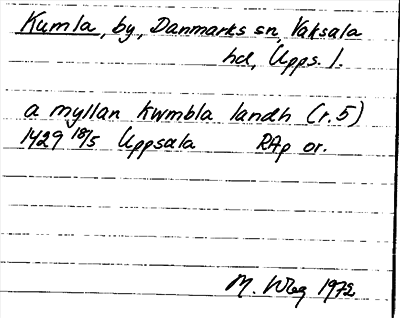 Kumla, by, Danmarks sn, Vaksala
hd, Upps. l.
a myllan kwmbla landh (r. 5)
1429 18/5 Uppsala RAp or.
M. Wbg 1972